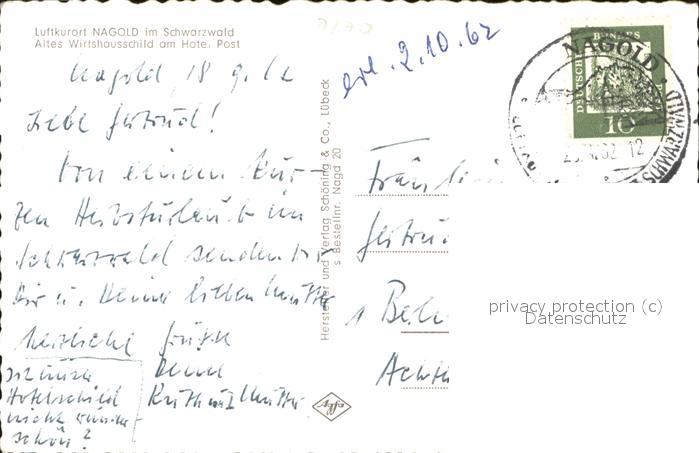 Luftkurort NAGOLD im Schwarzwald
Altes Wirtshausschild am Hote. Post
Nagold, 18 9. 62
erl. 2.10.62
Liebe Gertrud!
Von einem kur-
zen Herbsturlaub im
Schwarzwald senden wir
Dir u. Deine lieben Mutter
herzliche Grüße
Deine
Ruth und Mutter.
Ist unser
Hotelschild
nicht wunder-
schön?
Hersteller und Verlag Schöning & Co., Lübeck
s Bestellnr. Nagd 20
Fräulein
Gertrud
1 Berl
Acht
DEUTSCHE BUNDES
10
NAGOLD
SCHWARZWALD
62 12
privacy protection (c)
Datenschutz